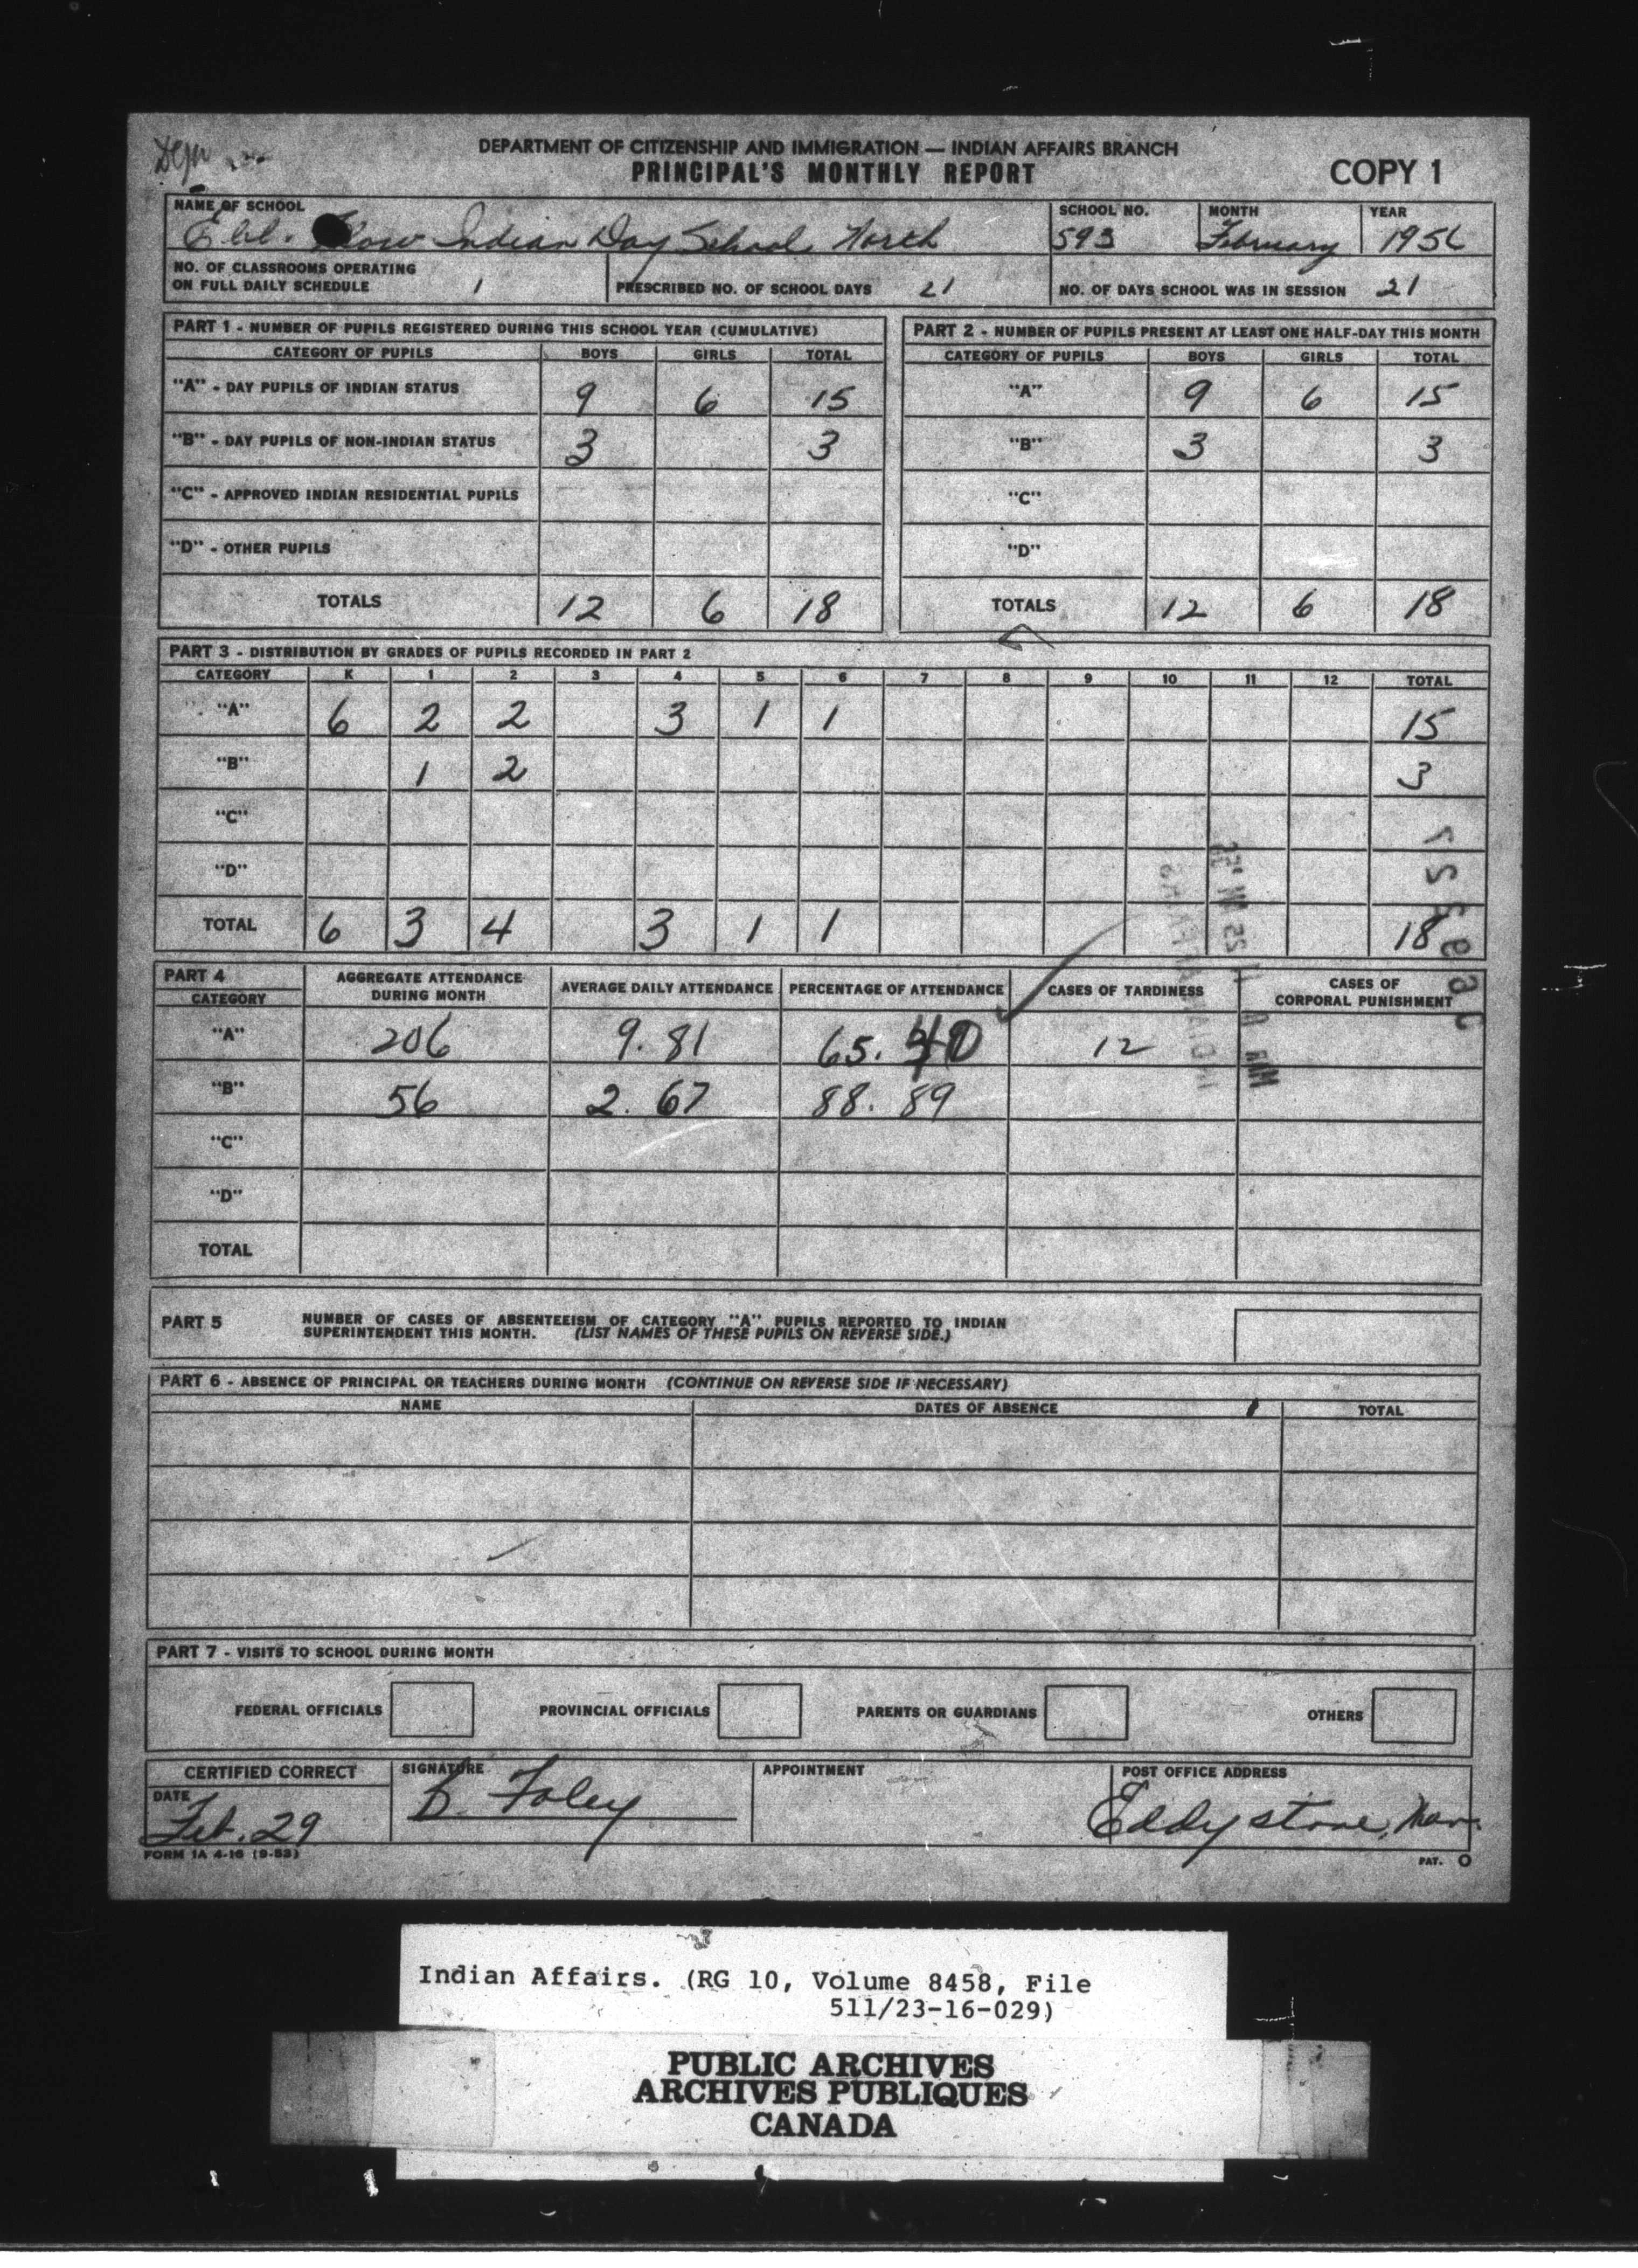 DEPARTMENT OF CITIZENSHIP AND IMMIGRATION — INDIAN AFFAIRS BRANCH
PRINCIPAL'S MONTHLY REPORT
COPY 1
NAME OF SCHOOL SCHOOL NO. MONTH YEAR
Indian Day School North 593 February 1956
NO. OF CLASSROOMS OPERATING
ON FULL DAILY SCHEDULE 1 PRESCRIBED NO. OF SCHOOL DAYS 21 NO. OF DAYS SCHOOL WAS IN SESSION 21
PART 1 - NUMBER OF PUPILS REGISTERED DURING THIS SCHOOL YEAR (CUMULATIVE)
CATEGORY OF PUPILS BOYS GIRLS TOTAL
"A" - DAY PUPILS OF INDIAN STATUS 9 6 15
"B" - DAY PUPILS OF NON-INDIAN STATUS 3 3
"C" - APPROVED INDIAN RESIDENTIAL PUPILS
"D" - OTHER PUPILS
TOTALS 12 6 18
PART 2 - NUMBER OF PUPILS PRESENT AT LEAST ONE HALF-DAY THIS MONTH
CATEGORY OF PUPILS BOYS GIRLS TOTAL
"A" 9 6 15
"B" 3 3
"C"
"D"
TOTALS 12 6 18
PART 3 - DISTRIBUTION BY GRADES OF PUPILS RECORDED IN PART 2
CATEGORY K 1 2 3 4 5 6 7 8 9 10 11 12 TOTAL
"A" 6 2 2 3 1 1 15
"B" 1 2 3
"C"
"D"
TOTAL 6 3 4 3 1 1 18
PART 4
CATEGORY AGGREGATE ATTENDANCE DURING MONTH AVERAGE DAILY ATTENDANCE PERCENTAGE OF ATTENDANCE CASES OF TARDINESS CASES OF CORPORAL PUNISHMENT
"A" 206 9.81 65.40 12
"B" 56 2.67 88.89
"C"
"D"
TOTAL
PART 5 NUMBER OF CASES OF ABSENTEEISM OF CATEGORY "A" PUPILS REPORTED TO INDIAN
SUPERINTENDENT THIS MONTH. (LIST NAMES OF THESE PUPILS ON REVERSE SIDE.)
PART 6 - ABSENCE OF PRINCIPAL OR TEACHERS DURING MONTH (CONTINUE ON REVERSE SIDE IF NECESSARY)
NAME DATES OF ABSENCE TOTAL
PART 7 - VISITS TO SCHOOL DURING MONTH
FEDERAL OFFICIALS PROVINCIAL OFFICIALS PARENTS OR GUARDIANS OTHERS
CERTIFIED CORRECT SIGNATURE APPOINTMENT POST OFFICE ADDRESS
DATE
Feb. 29 B. Foley Eddystone, Man.
FORM 1A 4-16 (9-53) PAT. O
Indian Affairs. (RG 10, Volume 8458, File
511/23-16-029)
PUBLIC ARCHIVES
ARCHIVES PUBLIQUES
CANADA